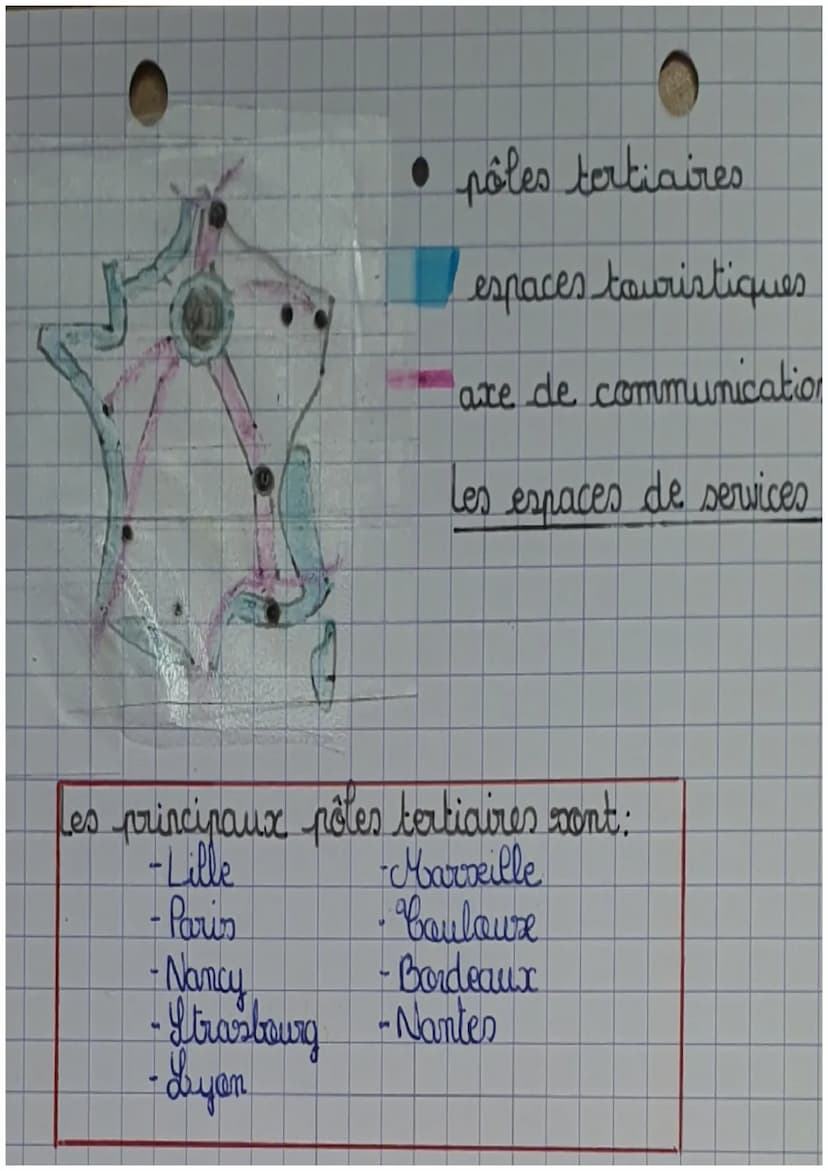 pôles tertiaires
espaces touristiques
axe de communication
Les espaces de services
Les principaux pôles tertiaires sont:
-Lille
-Paris
-Nancy
-Strasbourg
-Lyon
-Marseille
-Toulouse
-Bordeaux
-Nantes